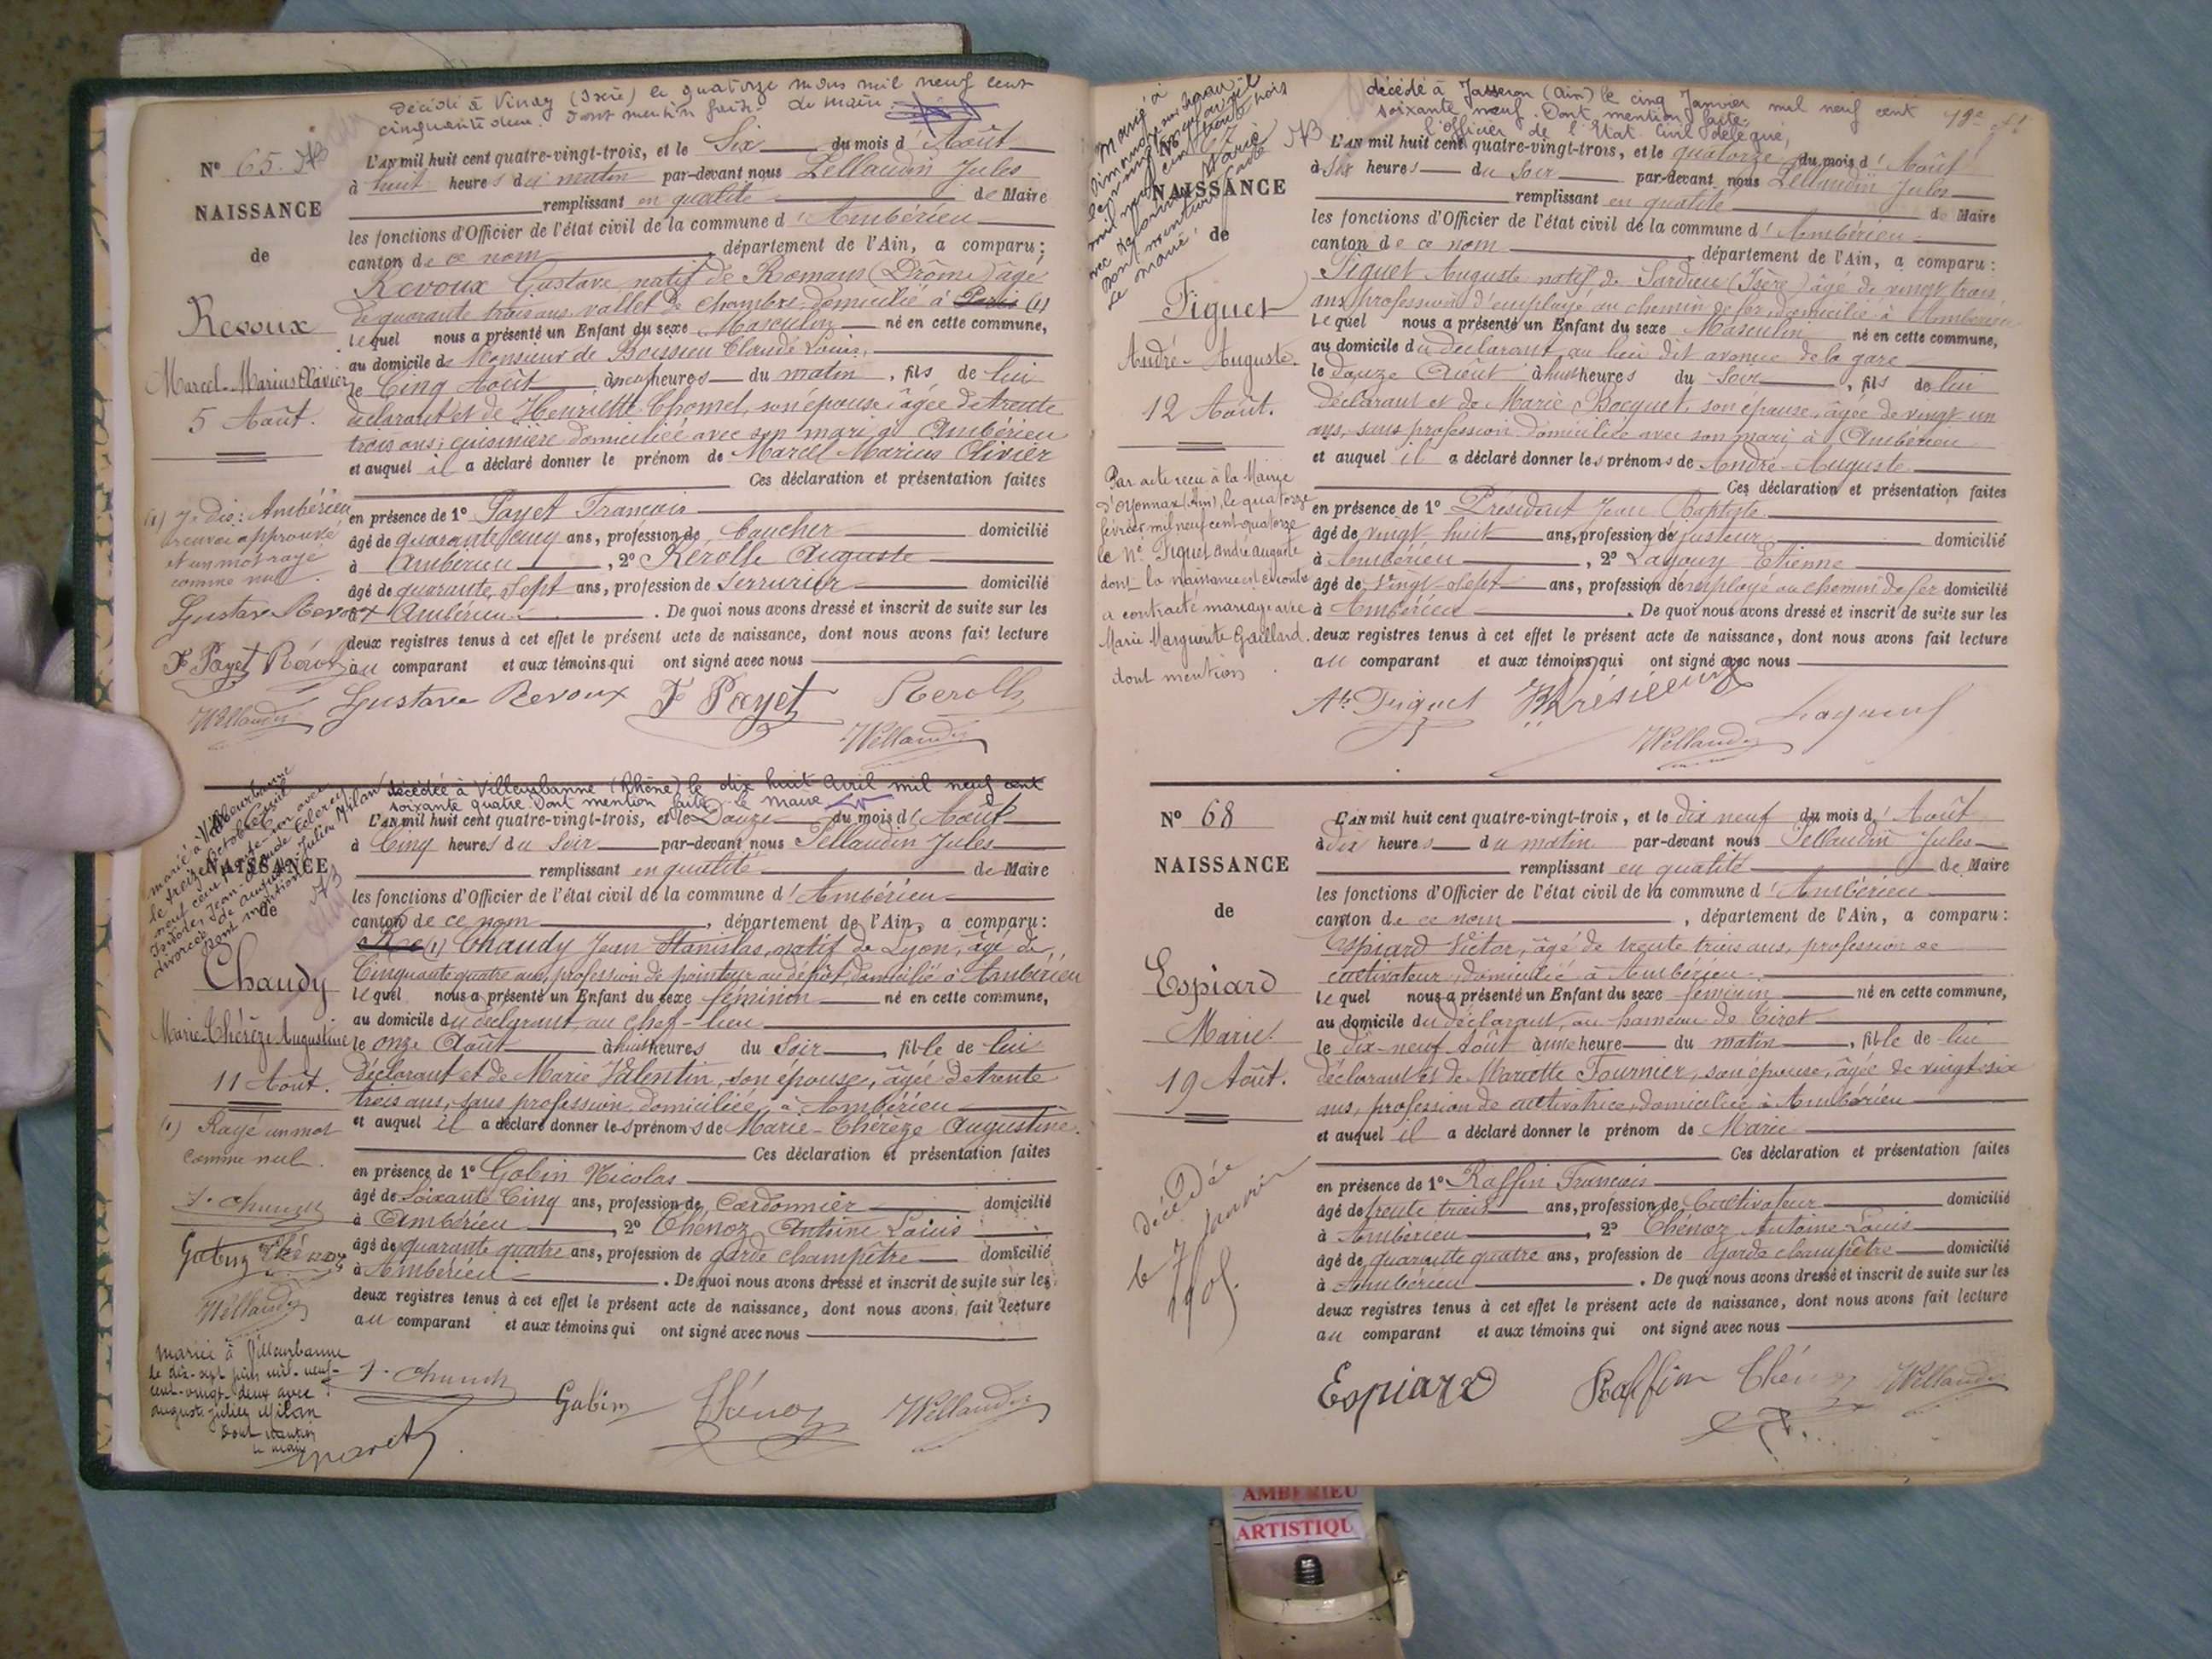 Décédé à Vinay (Isère) le quatorze mars mil neuf cent
cinquante deux. Dont mention faite. Le Maire.
N° 65.
NAISSANCE
de
Revoux
Marcel-Marius Olivier
5 Août.
(1) Je dis: Ambérieu
renvoi approuvé
et un mot rayé
comme nul.
Gustave Revoux
F Payet Rérolle
L'AN mil huit cent quatre-vingt-trois, et le Six du mois d'Août
à huit heures du matin par-devant nous Pellaudin Jules
remplissant en qualité de Maire
les fonctions d'Officier de l'état civil de la commune d'Ambérieu
canton de ce nom, département de l'Ain, a comparu:
Revoux Gustave natif de Romans (Drôme) âgé
de quarante trois ans vallet de chambre domicilié à Paris (1)
lequel nous a présenté un Enfant du sexe Masculin né en cette commune,
au domicile de Monsieur de Boissieu Claude Louis,
le Cinq Août à neuf heures du matin, fils de lui
déclarant et de Henriette Chomel, son épouse, âgée de trente
trois ans, cuisinière domiciliée avec son mari à Ambérieu
et auquel il a déclaré donner le prénom de Marcel Marius Olivier
Ces déclaration et présentation faites
en présence de 1° Payet François
âgé de quarante cinq ans, profession de boucher domicilié
à Ambérieu, 2° Rérolle Auguste
âgé de quarante sept ans, profession de serrurier domicilié
à Ambérieu. De quoi nous avons dressé et inscrit de suite sur les
deux registres tenus à cet effet le présent acte de naissance, dont nous avons fait lecture
au comparant et aux témoins qui ont signé avec nous
Gustave Revoux F Payet Rérolle
décédée à Villeurbanne (Rhône) le dix huit avril mil neuf cent
soixante quatre. Dont mention faite. Le Maire
NAISSANCE
de
Chaudy
Marie-Thérèze-Augustine
11 Août.
(1) Rayé un mot
comme nul.
Gobin Thénoz
mariée à Villeurbanne
le dix-sept juin mil-neuf-
cent-vingt-deux avec
auguste julien Milan
Dont mention
le maire
L'AN mil huit cent quatre-vingt-trois, et le Douze du mois d'Août
à Cinq heures du Soir par-devant nous Pellaudin Jules
remplissant en qualité de Maire
les fonctions d'Officier de l'état civil de la commune d'Ambérieu
canton de ce nom, département de l'Ain, a comparu:
(1) Chaudy Jean Stanislas, natif de Lyon, âgé de
Cinquante quatre ans, profession de pointeur au dépôt, domicilié à Ambérieu
lequel nous a présenté un Enfant du sexe féminin né en cette commune,
au domicile du déclarant, au chef-lieu
le onze Août à huit heures du Soir, fille de lui
déclarant et de Marie Valentin, son épouse, âgée de trente
trois ans, sans profession, domiciliée à Ambérieu
et auquel il a déclaré donner les prénoms de Marie-Thérèze Augustine.
Ces déclaration et présentation faites
en présence de 1° Gobin Nicolas
âgé de Soixante Cinq ans, profession de Cordonnier domicilié
à Ambérieu, 2° Thénoz Antoine Louis
âgé de quarante quatre ans, profession de garde champêtre domicilié
à Ambérieu. De quoi nous avons dressé et inscrit de suite sur les
deux registres tenus à cet effet le présent acte de naissance, dont nous avons fait lecture
au comparant et aux témoins qui ont signé avec nous
Gobin Thénoz
décédé à Jasseron (Ain) le cinq Janvier mil neuf cent
soixante neuf. Dont mention faite.
L'officier de l'Etat Civil délégué,
NAISSANCE
de
Figuet
André-Auguste.
12 Août.
Par acte reçu à la Mairie
d'Oyonnax (Ain), le quatorze
février mil neuf cent quatorze
le Né Figuet André Auguste
dont la naissance est ci-contre
a contracté mariage avec
Marie Marguerite Gaillard.
dont mention
L'AN mil huit cent quatre-vingt-trois, et le quatorze du mois d'Août
à six heures du Soir par-devant nous Pellaudin Jules
remplissant en qualité de Maire
les fonctions d'Officier de l'état civil de la commune d'Ambérieu
canton de ce nom, département de l'Ain, a comparu:
Figuet Auguste natif de Sardieu (Isère) âgé de vingt trois
ans, profession d'employé au chemin de fer, domicilié à Ambérieu
lequel nous a présenté un Enfant du sexe Masculin né en cette commune,
au domicile du déclarant au lieu dit avenue de la gare
le douze Août à huit heures du Soir, fils de lui
déclarant et de Marie Bocquet, son épouse, âgée de vingt un
ans, sans profession domiciliée avec son mari à Ambérieu
et auquel il a déclaré donner les prénoms de André-Auguste
Ces déclaration et présentation faites
en présence de 1° Président Jean Baptiste
âgé de vingt huit ans, profession d'ajusteur domicilié
à Ambérieu, 2° Lagouy Etienne
âgé de vingt sept ans, profession d'employé au chemin de fer domicilié
à Ambérieu. De quoi nous avons dressé et inscrit de suite sur les
deux registres tenus à cet effet le présent acte de naissance, dont nous avons fait lecture
au comparant et aux témoins qui ont signé avec nous
Ate Figuet
N° 68
NAISSANCE
de
Espiard
Marie.
19 Août.
Décédée
le 7 Janvier
L'AN mil huit cent quatre-vingt-trois, et le dix neuf du mois d'Août
à dix heures du matin par-devant nous Pellaudin Jules
remplissant en qualité de Maire
les fonctions d'Officier de l'état civil de la commune d'Ambérieu
canton de ce nom, département de l'Ain, a comparu:
Espiard Victor, âgé de trente trois ans, profession de
cultivateur, domicilié à Ambérieu,
lequel nous a présenté un Enfant du sexe féminin né en cette commune,
au domicile du déclarant, au hameau de Tiret
le dix-neuf Août à une heure du matin, fille de lui
déclarant et de Mariette Fournier, son épouse, âgée de vingt-six
ans, profession de cultivatrice, domiciliée à Ambérieu
et auquel il a déclaré donner le prénom de Marie
Ces déclaration et présentation faites
en présence de 1° Raffin François
âgé de trente trois ans, profession de Cultivateur domicilié
à Ambérieu, 2° Thénoz Antoine Louis
âgé de quarante quatre ans, profession de garde champêtre domicilié
à Ambérieu. De quoi nous avons dressé et inscrit de suite sur les
deux registres tenus à cet effet le présent acte de naissance, dont nous avons fait lecture
au comparant et aux témoins qui ont signé avec nous
Espiard Raffin Thénoz
AMBERIEU
ARTISTIQU